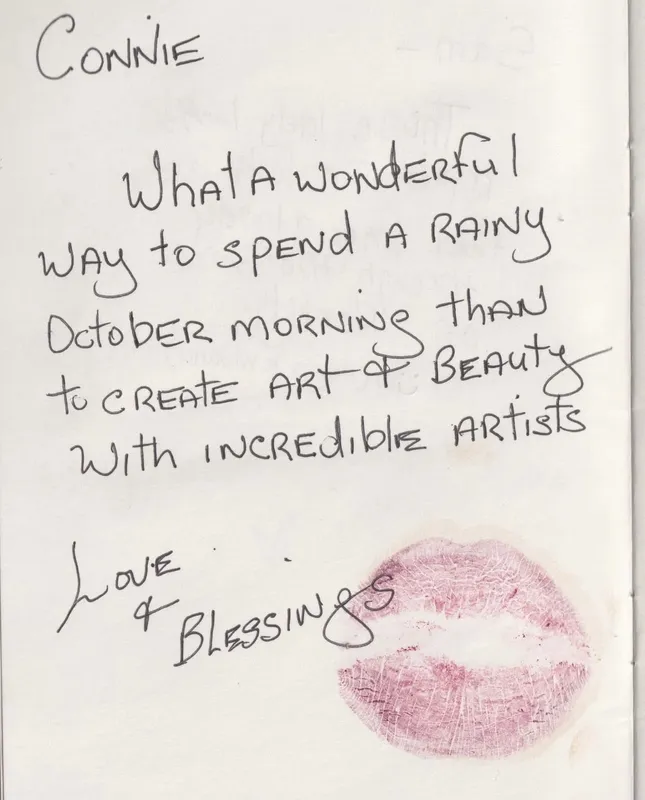 Connie
What a wonderful
way to spend a rainy
October morning than
to create art & Beauty
With incredible artists
Love
&
Blessings